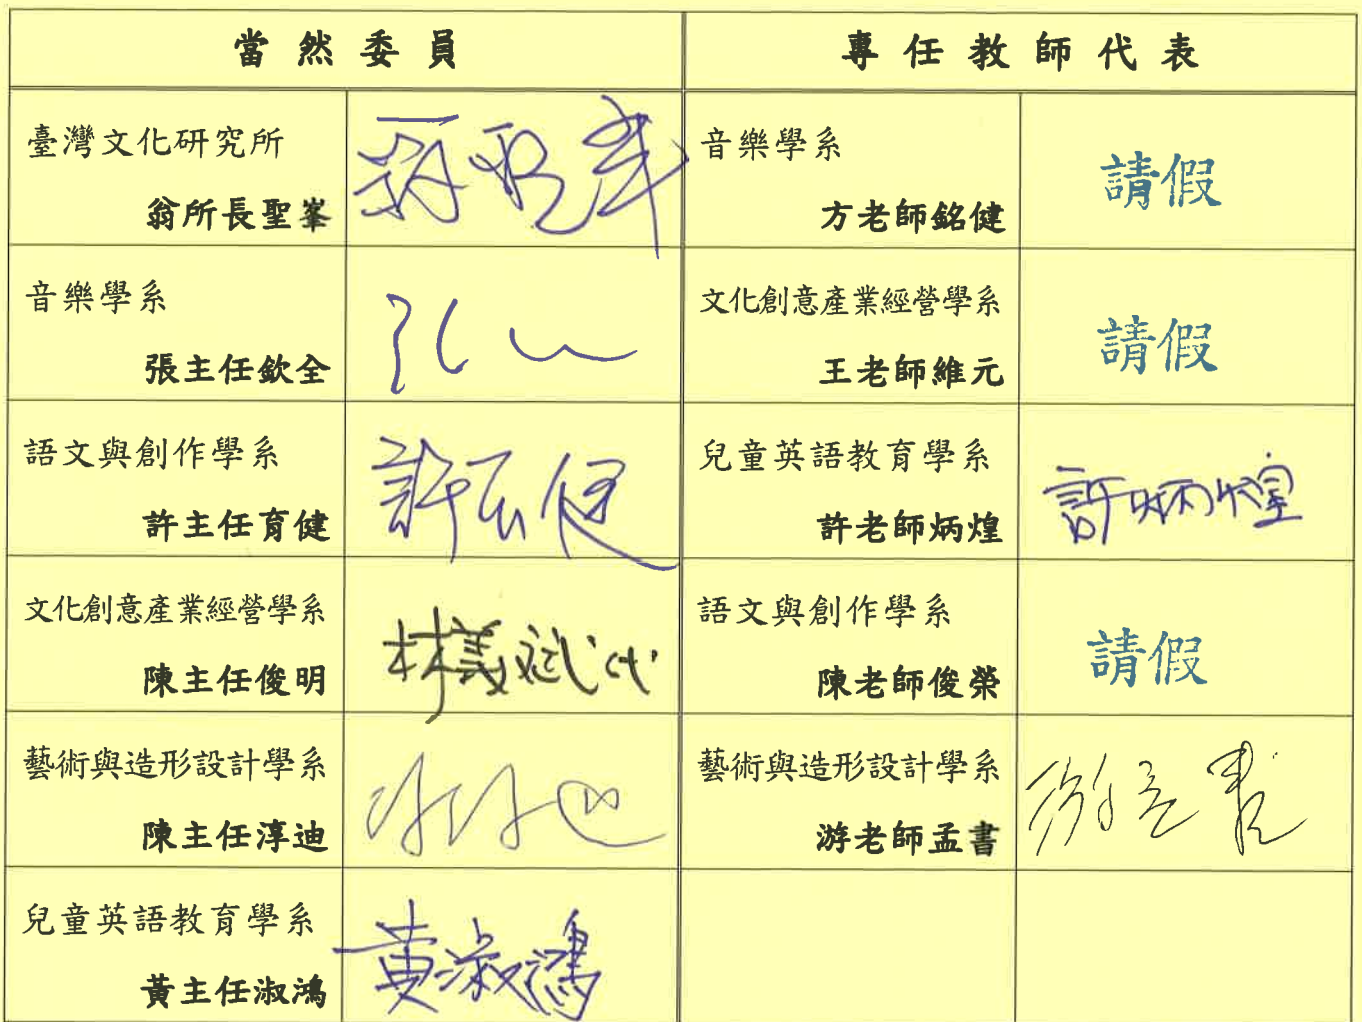 當然委員
專任教師代表
臺灣文化研究所
翁所長聖峯
翁聖峯
音樂學系
方老師銘健
請假
音樂學系
張主任欽全
文化創意產業經營學系
王老師維元
請假
語文與創作學系
許主任育健
許育健
兒童英語教育學系
許老師炳煌
許炳煌
文化創意產業經營學系
陳主任俊明
林義斌代
語文與創作學系
陳老師俊榮
請假
藝術與造形設計學系
陳主任淳迪
藝術與造形設計學系
游老師孟書
游孟書
兒童英語教育學系
黃主任淑鴻
黃淑鴻